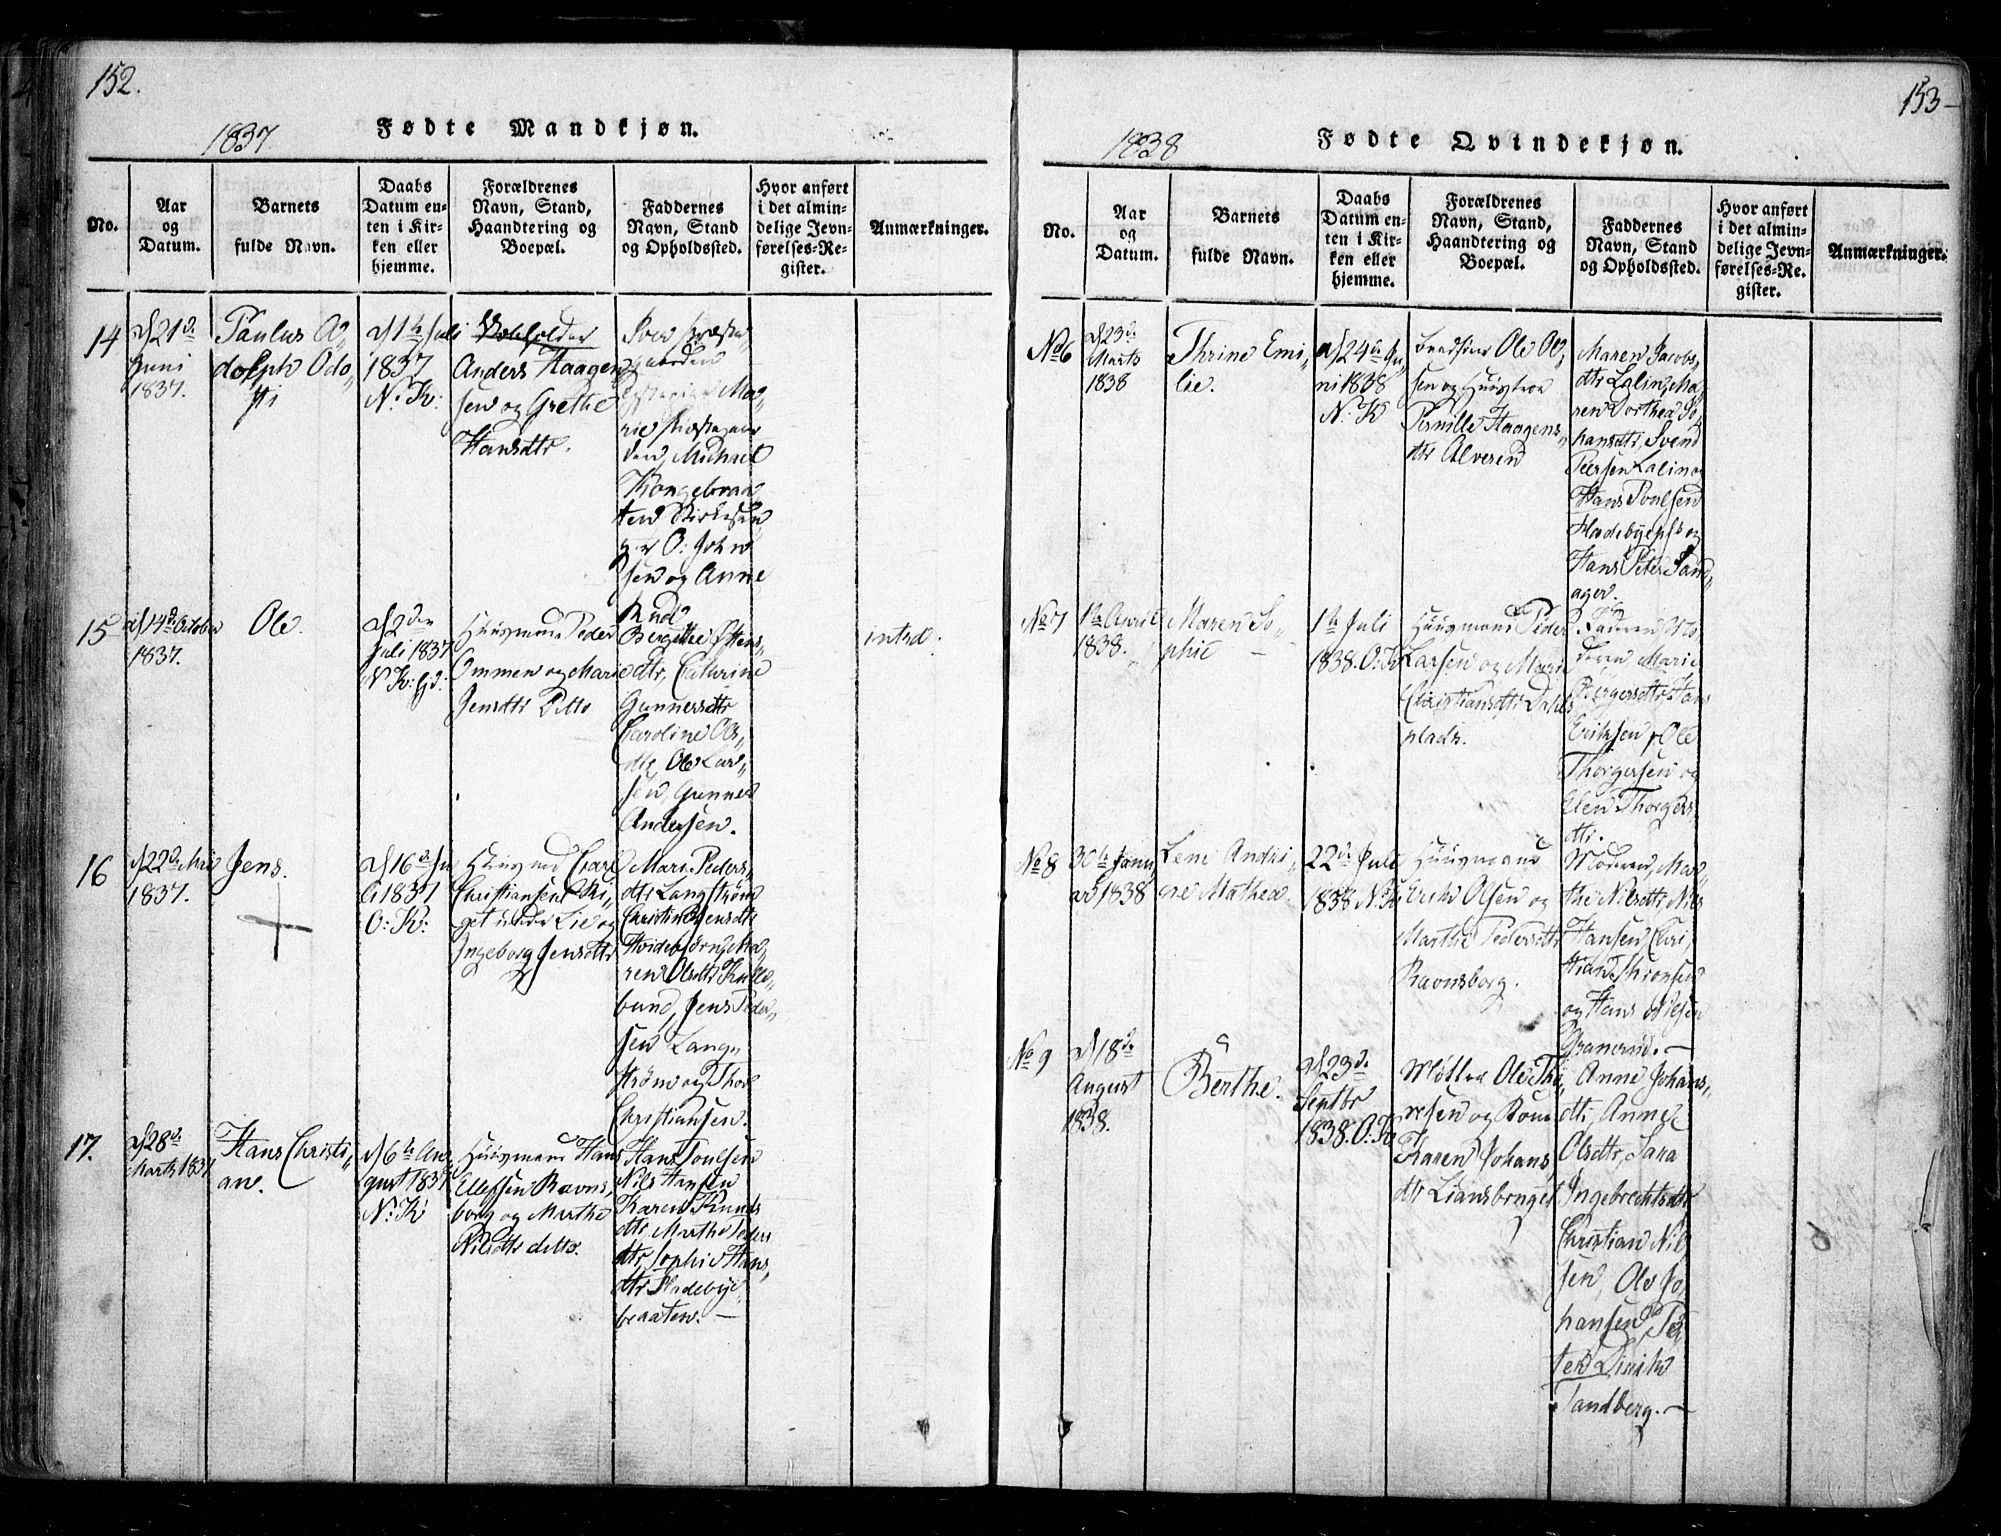 152.
1837.
Fødte Mandkjøn.
No.
Aar
og
Datum.
Barnets
fulde Navn.
Daabs
Datum en-
ten i Kir-
ken eller
hjemme.
Forældrenes
Navn, Stand,
Haandtering og
Boepæl.
Faddernes
Navn, Stand
og Opholdssted.
Hvor anført
i det almin-
delige Jevn-
førelses-Re-
gister.
Anmærkninger.
14
d 21de
Juni
1837.
Paulus A-
dolph Odo-
d 1te Juli
1837
N: K:
Anders Haagen
sen og Grethe
Hansdtr.
rie
den, Michael
Kongebraa
ten
O: John
sen og Anne
Rud
15
d 14de October
1837.
Ole.
d 2den
Juli 1837
N K:
Huusmand Peder
Ommen og Marie
Jensdtr Ditto
Bergithe
dtr, Cathrine
Gunnersdtr
Caroline Ols-
dtr, Ole Lar-
sen, Gunner
Andersen.
introd.
16
d 22de Mai
1837.
Jens.
d 16de Ju
li 1837
O: K:
Huusmd Carl
Christiansen
get under Lie og
Ingeborg Jensdtr
Mari Peders-
dtr Langstrøm
Christine Jensdtr
Hvidebjørn, Ka-
ren Olsdtr Kulle-
bund, Jens Peder-
sen Lang-
strøm og Thor
Christiansen.
17.
d 28de
Marts 1837
Hans Christi-
an.
d 6te Au-
gust 1837
N: K
Huusmand Hans
Ellefsen Ravns-
borg og Marthe
Nilsdtr ditto.
Hans Poulsen
Nils Hansen
Karen Knuds
dtr, Marthe Peders
dtr, Sophie Hans-
dtr Stadebye-
braaten. —
153
1838
Fødte Qvindekjøn.
No.
Aar
og
Datum.
Barnets
fulde Navn.
Daabs
Datum en-
ten i Kir-
ken eller
hjemme.
Forældrenes
Navn, Stand,
Haandtering og
Boepæl.
Faddernes
Navn, Stand
og Opholdssted.
Hvor anført
i det almin-
delige Jevn-
førelses-Re-
gister.
Anmærkninger.
No 6
d 23de
Marts
1838
Thrine Emi-
lie.
d 24de Ju-
ni 1838
N: K
Ole Ol-
sen og Hustroe
Pernille Haagens-
dtr Alveren
Maren Jacobs-
dtr Lalin, Ma-
ren Dorthea Jo-
hansdtr, Svend
Peersen Lalin og
Hans Poulsen
og
Hans Peter Sand-
ager.
No 7
1te April
1838.
Maren So-
phie —
1te Juli
1838. O: K
Huusmand Peder
Larsen og Mari
Christiansdtr Dahls
pladr.
Marie
Børgersdtr, Hans
Eriksen, Ole
Thorgersen og
Elen Thorgers
dtr.
No 8
30te Janu
ar 1838
Lene Andri-
ne Mathea.
22de Juli
1838 N: K
Huusmand
Erik Olsen og
Marthe Pedersdtr
Ravnsborg.
Moderen, Mar-
the Nilsdtr, Nils
Hansen, Chri
stian Thronsen
og Hans Nilsen
Granerud. —
No 9
d 18de
August
1838.
Benthe.
d 23de
Septbr
1838. O: K
Møller Ole Tho-
resen og Kone
Karen Johans
dtr Liansbraget
Anne Johans-
dtr, Anne
Olsdtr, Sara
Ingebrechtsdtr
Christian Nil
sen, Ole Jo-
hansen, Pet
ter
Sandberg. —